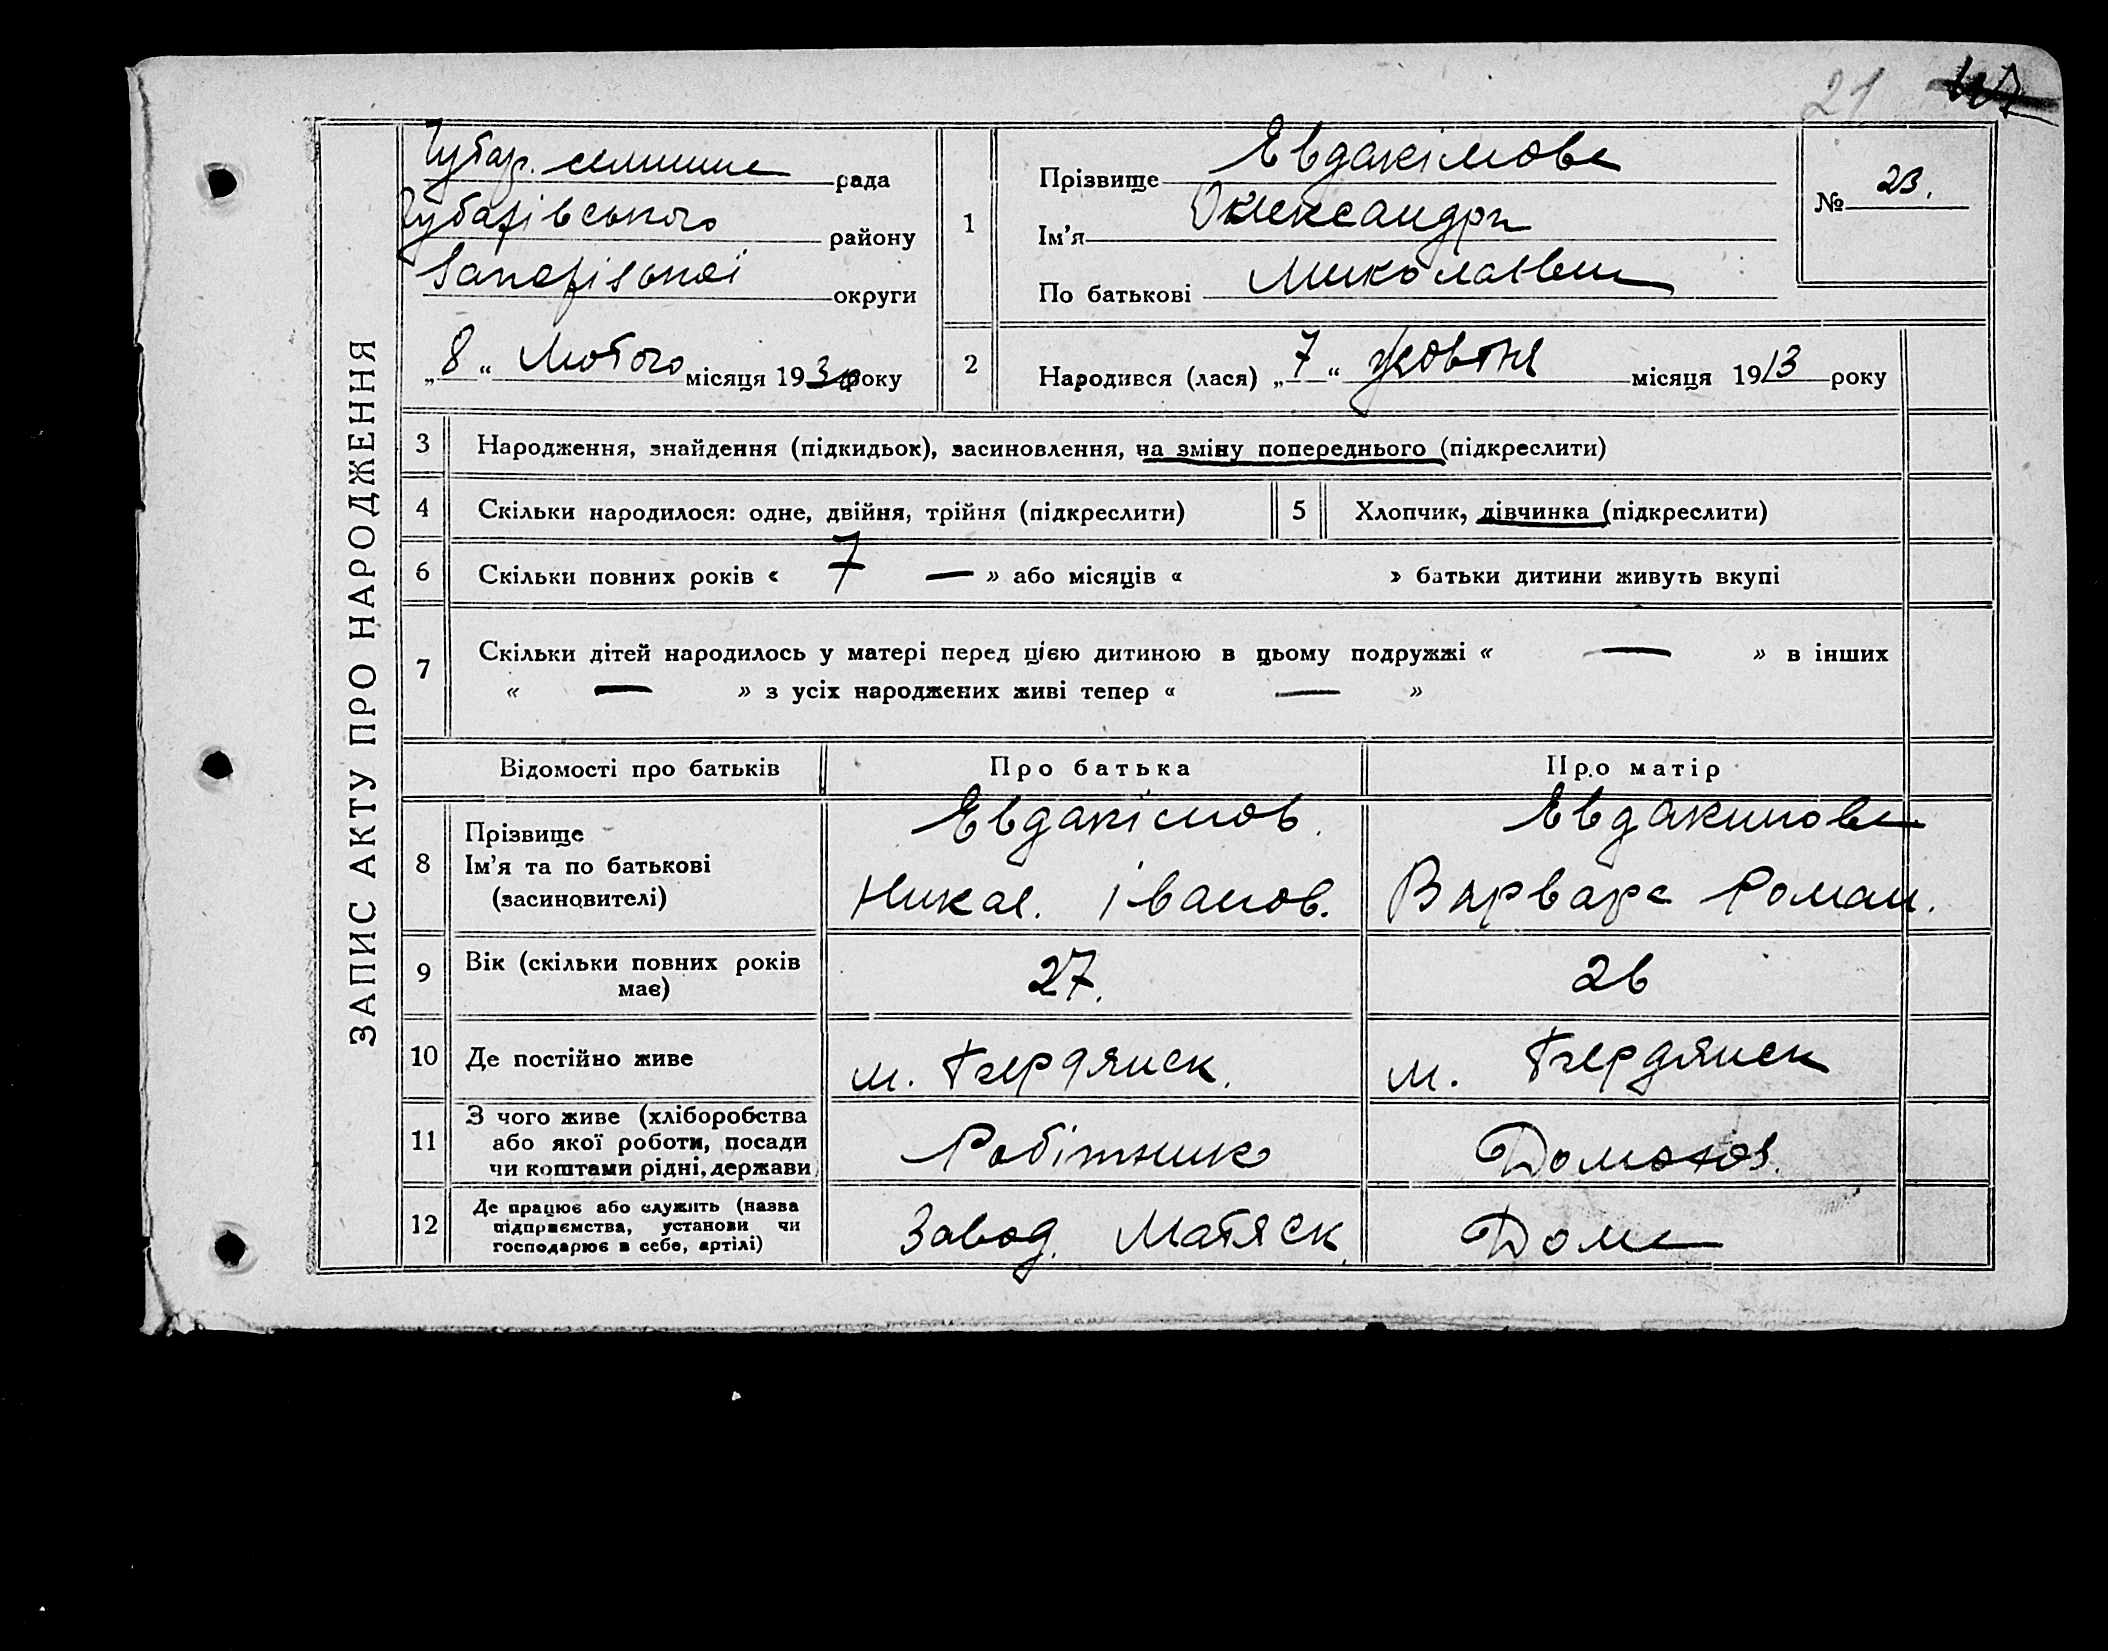 21 117
ЗАПИС АКТУ ПРО НАРОДЖЕННЯ
Чубар. селишне рада
Чубарівського району
Запорізької округи
„8“ Лютого місяця 1930 року
1
Прізвище Евдакімова
Ім’я Олександра
По батькові Миколаївна
№ 23.
2
Народився (лася) „7“ Жовтня місяця 1913 року
3 Народження, знайдення (підкидьок), засиновлення, на зміну попереднього (підкреслити)
4 Скільки народилося: одне, двійня, трійня (підкреслити) 5 Хлопчик, дівчинка (підкреслити)
6 Скільки повних років « 7 — » або місяців « » батьки дитини живуть вкупі
7 Скільки дітей народилось у матері перед цією дитиною в цьому подружжі « — » в інших
« — » з усіх народжених живі тепер « — »
Відомості про батьків Про батька Про матір
8 Прізвище Ім’я та по батькові (засиновителі)
Евдакімов. Евдакимова
Никол. Іванов. Варвара Роман.
9 Вік (скільки повних років має) 27. 26
10 Де постійно живе м. Бердянск. м. Бердянск
11 З чого живе (хліборобства або якої роботи, посади чи коштами рідні, держави) Робітник
12 Де працює або служить (назва підприємства, установи чи господарює в себе, артілі) Завод. Матяск. Дома